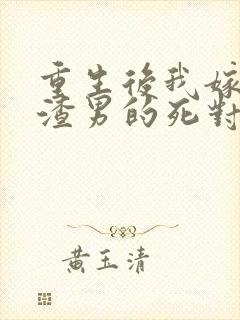 重生後我嫁
渣男的死對
黃玉清